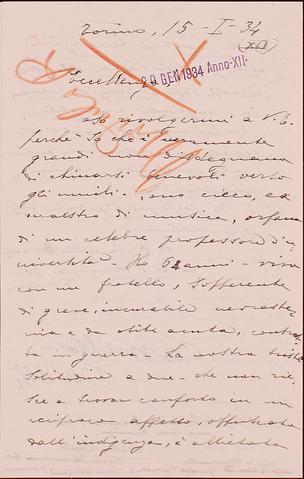 Torino, 15-I-34
(XII)
Eccellenza
20 GEN 1934 Anno-XII-
oso rivolgermi a V. E.
perchè so che i veramente
grandi non disdegnano
di chinarsi benevoli verso
gli umili. Sono cieco, ex
maestro di musica, orfano
di un celebre professore d'u
niversità - Ho 62 anni - vivo
con un fratello, sofferente
di grave, incurabile nevraste
nia e da otite acuta, contrat
ta in guerra - La nostra triste
solitudine a due - che non rie
sce a trovar conforto in un
reciproco affetto, offuscata
dall'indigenza, è allietata